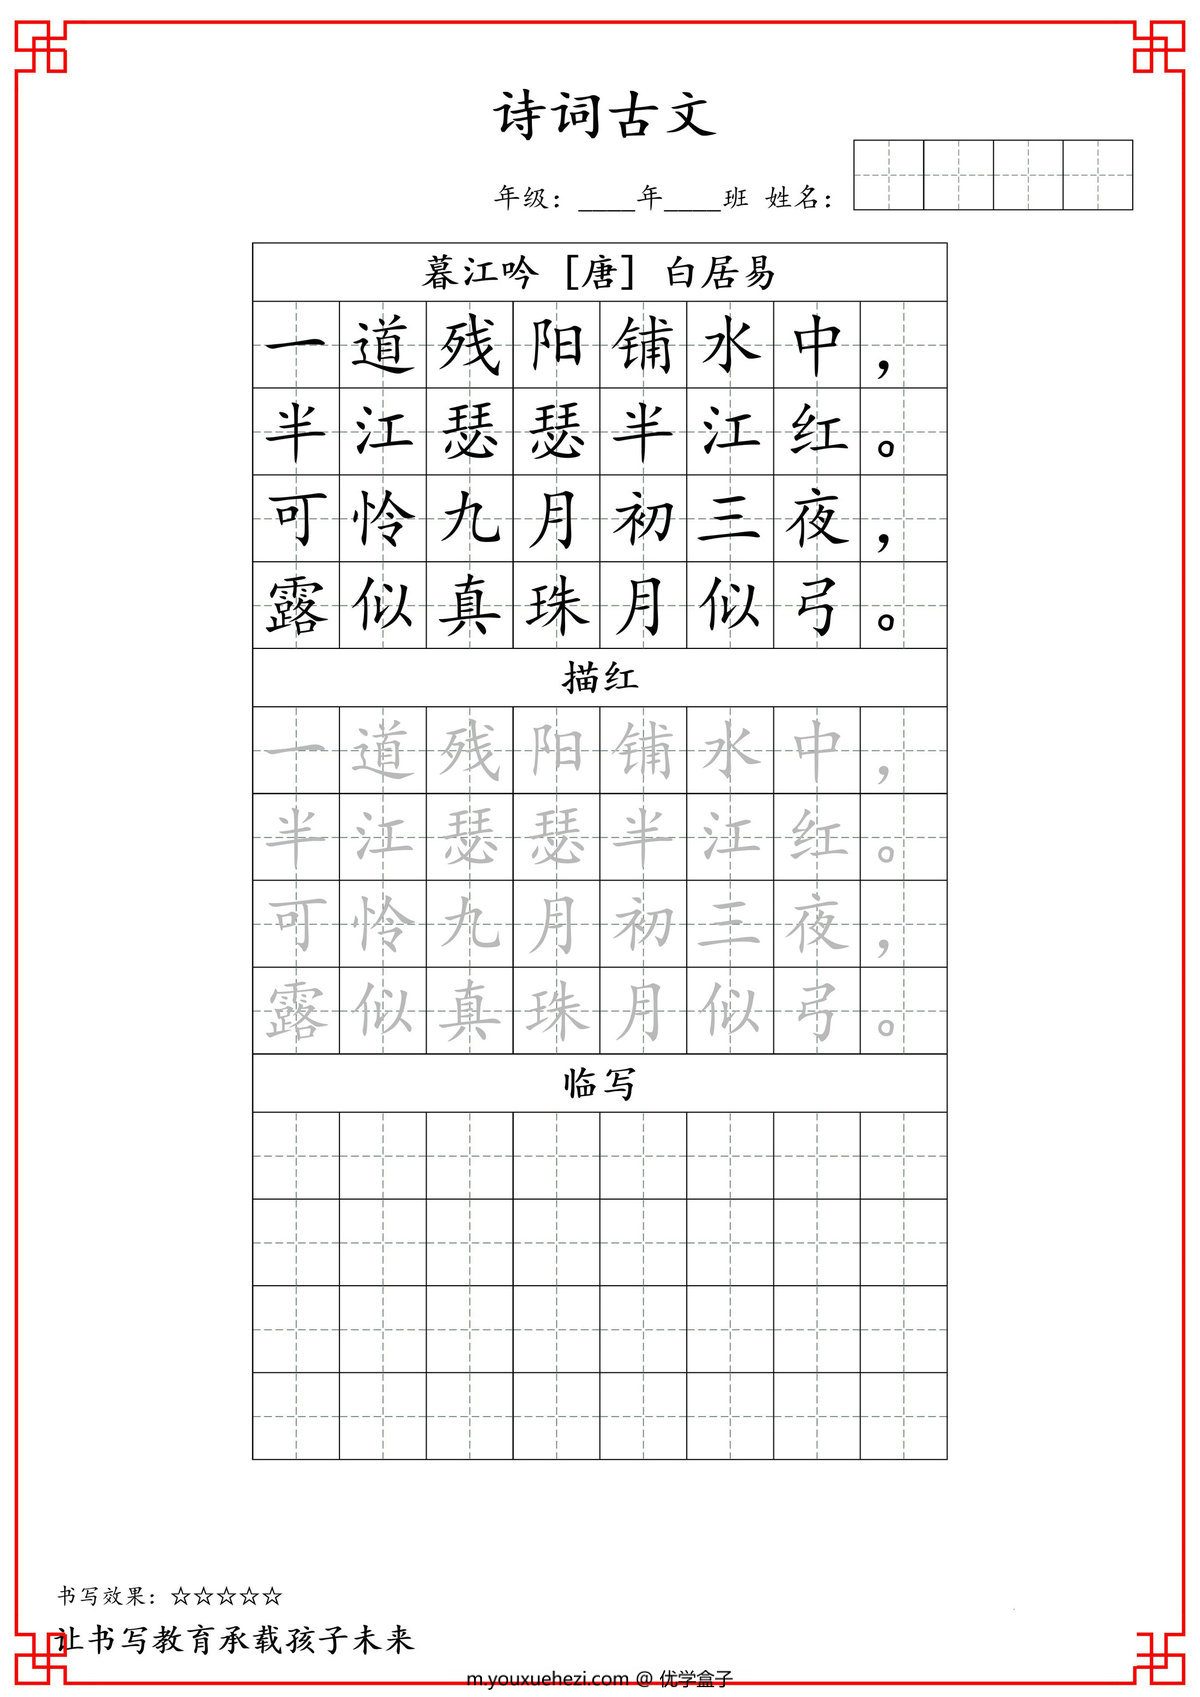 诗词古文
年级：____年____班 姓名：
暮江吟 [唐] 白居易
一道残阳铺水中，
半江瑟瑟半江红。
可怜九月初三夜，
露似真珠月似弓。
描红
一道残阳铺水中，
半江瑟瑟半江红。
可怜九月初三夜，
露似真珠月似弓。
临写
书写效果：☆☆☆☆☆
让书写教育承载孩子未来
m.youxuehezi.com @ 优学盒子